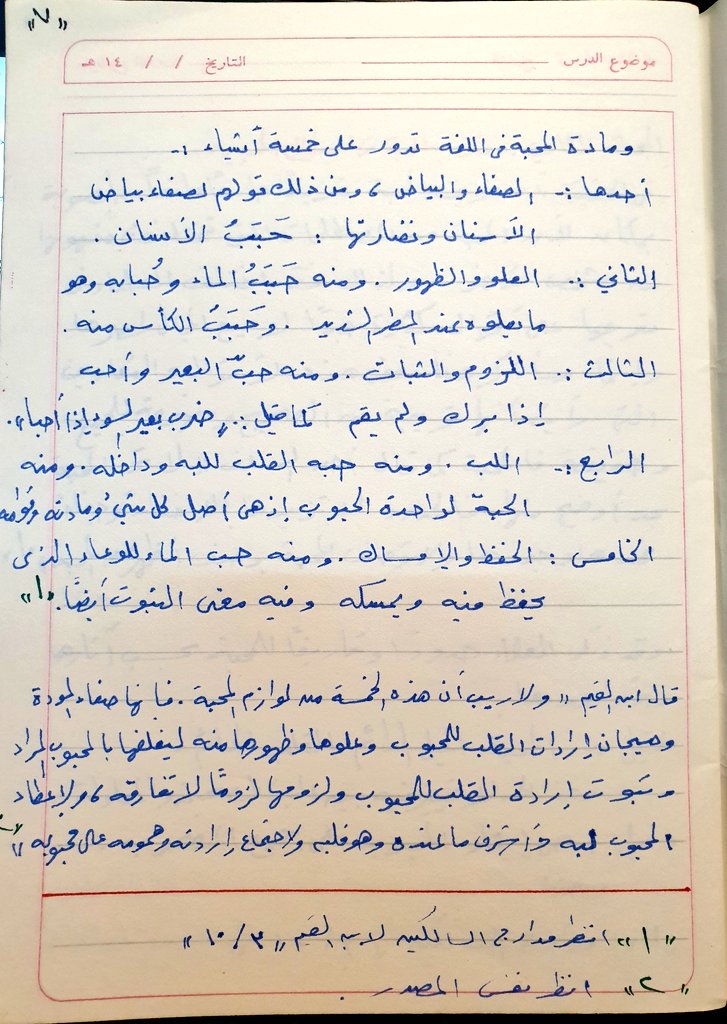 "٧"
موضوع الدرس ــــــــــــــ التاريخ / / ١٤ هـ
ومادة المحبة فى اللغة تدور على خمسة أشياء :-
أحدها :- الصفاء والبياض ، ومن ذلك قولهم لصفاء بياض
الأسنان ونضارتها : حَبَبُ الأسنان .
الثاني :- العلو والظهور . ومنه حَبَبُ الماء وحُبابه وهو
ما يعلوه عند المطر الشديد . وحَبَبُ الكأس منه .
الثالث :- اللزوم والثبات . ومنه حبّ البعير وأحب
إذا برك ولم يقم كما قيل :- ضرب بعير السوء إذا أحبا .
الرابع :- اللب . ومنه حبه القلب للبه وداخله . ومنه
الحبة لواحدة الحبوب إذ هى أصل كل شيء ومادته وقوامه
الخامس : الحفظ والإمساك . ومنه حب الماء للوعاء الذى
يحفظ فيه ويمسكه وفيه معنى الثبوت أيضًا . "١"
قال ابن القيم " ولا ريب أن هذه الخمسة من لوازم المحبة . فإنها صفاء المودة
وهيجان إرادات القلب للمحبوب وعلوها وظهورها منه لتعلقها بالمحبوب المراد
وثبوت إرادة القلب للمحبوب ولزومها لزومًا لا تفارقه ، ولإعطاء
المحبوب لبه وأشرف ما عنده وهو قلبه ولاجتماع إراداته وهمومه على محبوبه "
"١" انظر مدارج السالكين لابن القيم " ٣ / ١٠ "
"٢" انظر نفس المصدر .